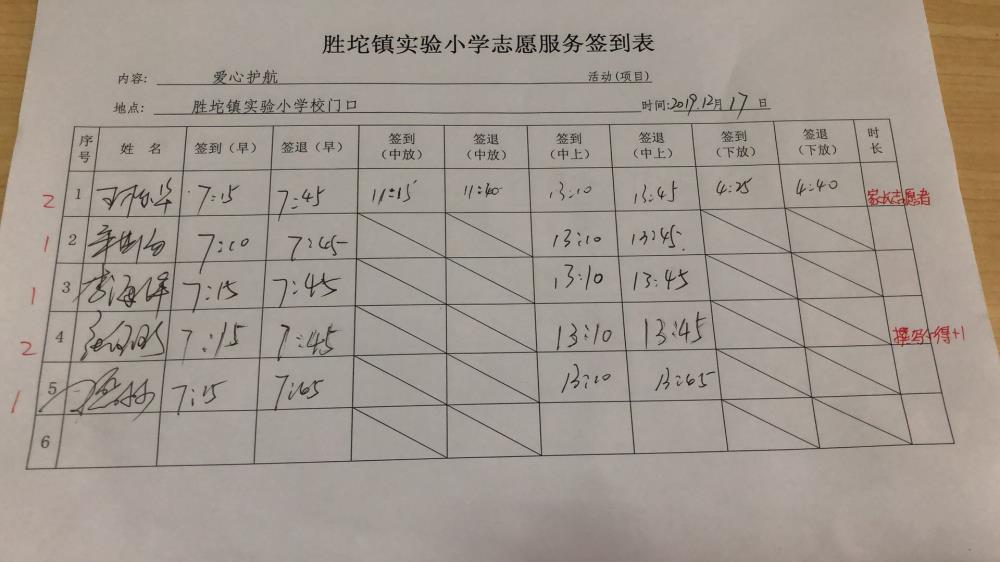 胜坨镇实验小学志愿服务签到表
内容: 爱心护航 活动(项目)
地点: 胜坨镇实验小学校门口 时间:2019.12月17日
序号 姓名 签到(早) 签退(早) 签到(中放) 签退(中放) 签到(中上) 签退(中上) 签到(下放) 签退(下放) 时长
2 1 7:15 7:45 11:15 11:40 13:10 13:45 4:25 4:40 家长志愿者
1 2 7:10 7:45 13:10 13:45
1 3 李海泽 7:15 7:45 13:10 13:45
2 4 7:15 7:45 13:10 13:45 撰写心得+1
1 5 7:15 7:45 13:10 13:45
6